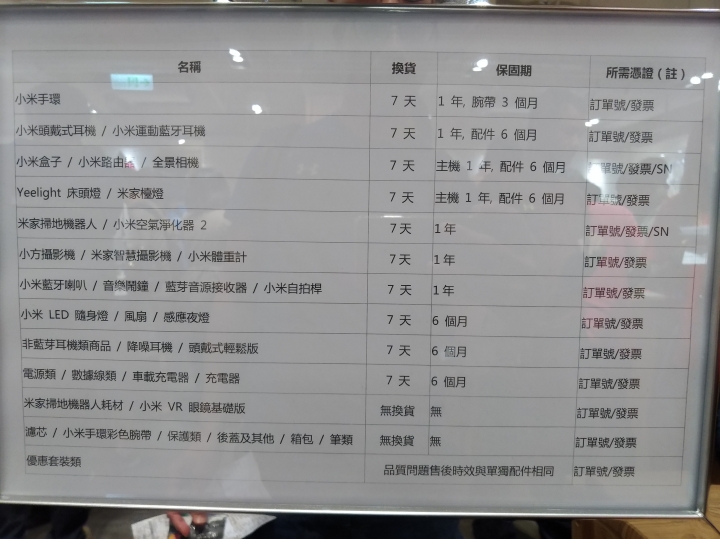 名稱 換貨 保固期 所需憑證（註）
小米手環 7 天 1 年, 腕帶 3 個月 訂單號/發票
小米頭戴式耳機 / 小米運動藍牙耳機 7 天 1 年, 配件 6 個月 訂單號/發票
小米盒子 / 小米路由器 / 全景相機 7 天 主機 1 年, 配件 6 個月 訂單號/發票/SN
Yeelight 床頭燈 / 米家檯燈 7 天 主機 1 年, 配件 6 個月 訂單號/發票
米家掃地機器人 / 小米空氣淨化器 2 7 天 1 年 訂單號/發票/SN
小方攝影機 / 米家智慧攝影機 / 小米體重計 7 天 1 年 訂單號/發票
小米藍牙喇叭 / 音樂鬧鐘 / 藍芽音源接收器 / 小米自拍桿 7 天 1 年 訂單號/發票
小米 LED 隨身燈 / 風扇 / 感應夜燈 7 天 6 個月 訂單號/發票
非藍芽耳機類商品 / 降噪耳機 / 頭戴式輕鬆版 7 天 6 個月 訂單號/發票
電源類 / 數據線類 / 車載充電器 / 充電器 7 天 6 個月 訂單號/發票
米家掃地機器人耗材 / 小米 VR 眼鏡基礎版 無換貨 無 訂單號/發票
濾芯 / 小米手環彩色腕帶 / 保護類 / 後蓋及其他 / 箱包 / 筆類 無換貨 無 訂單號/發票
優惠套裝類 品質問題售後時效與單獨配件相同 訂單號/發票